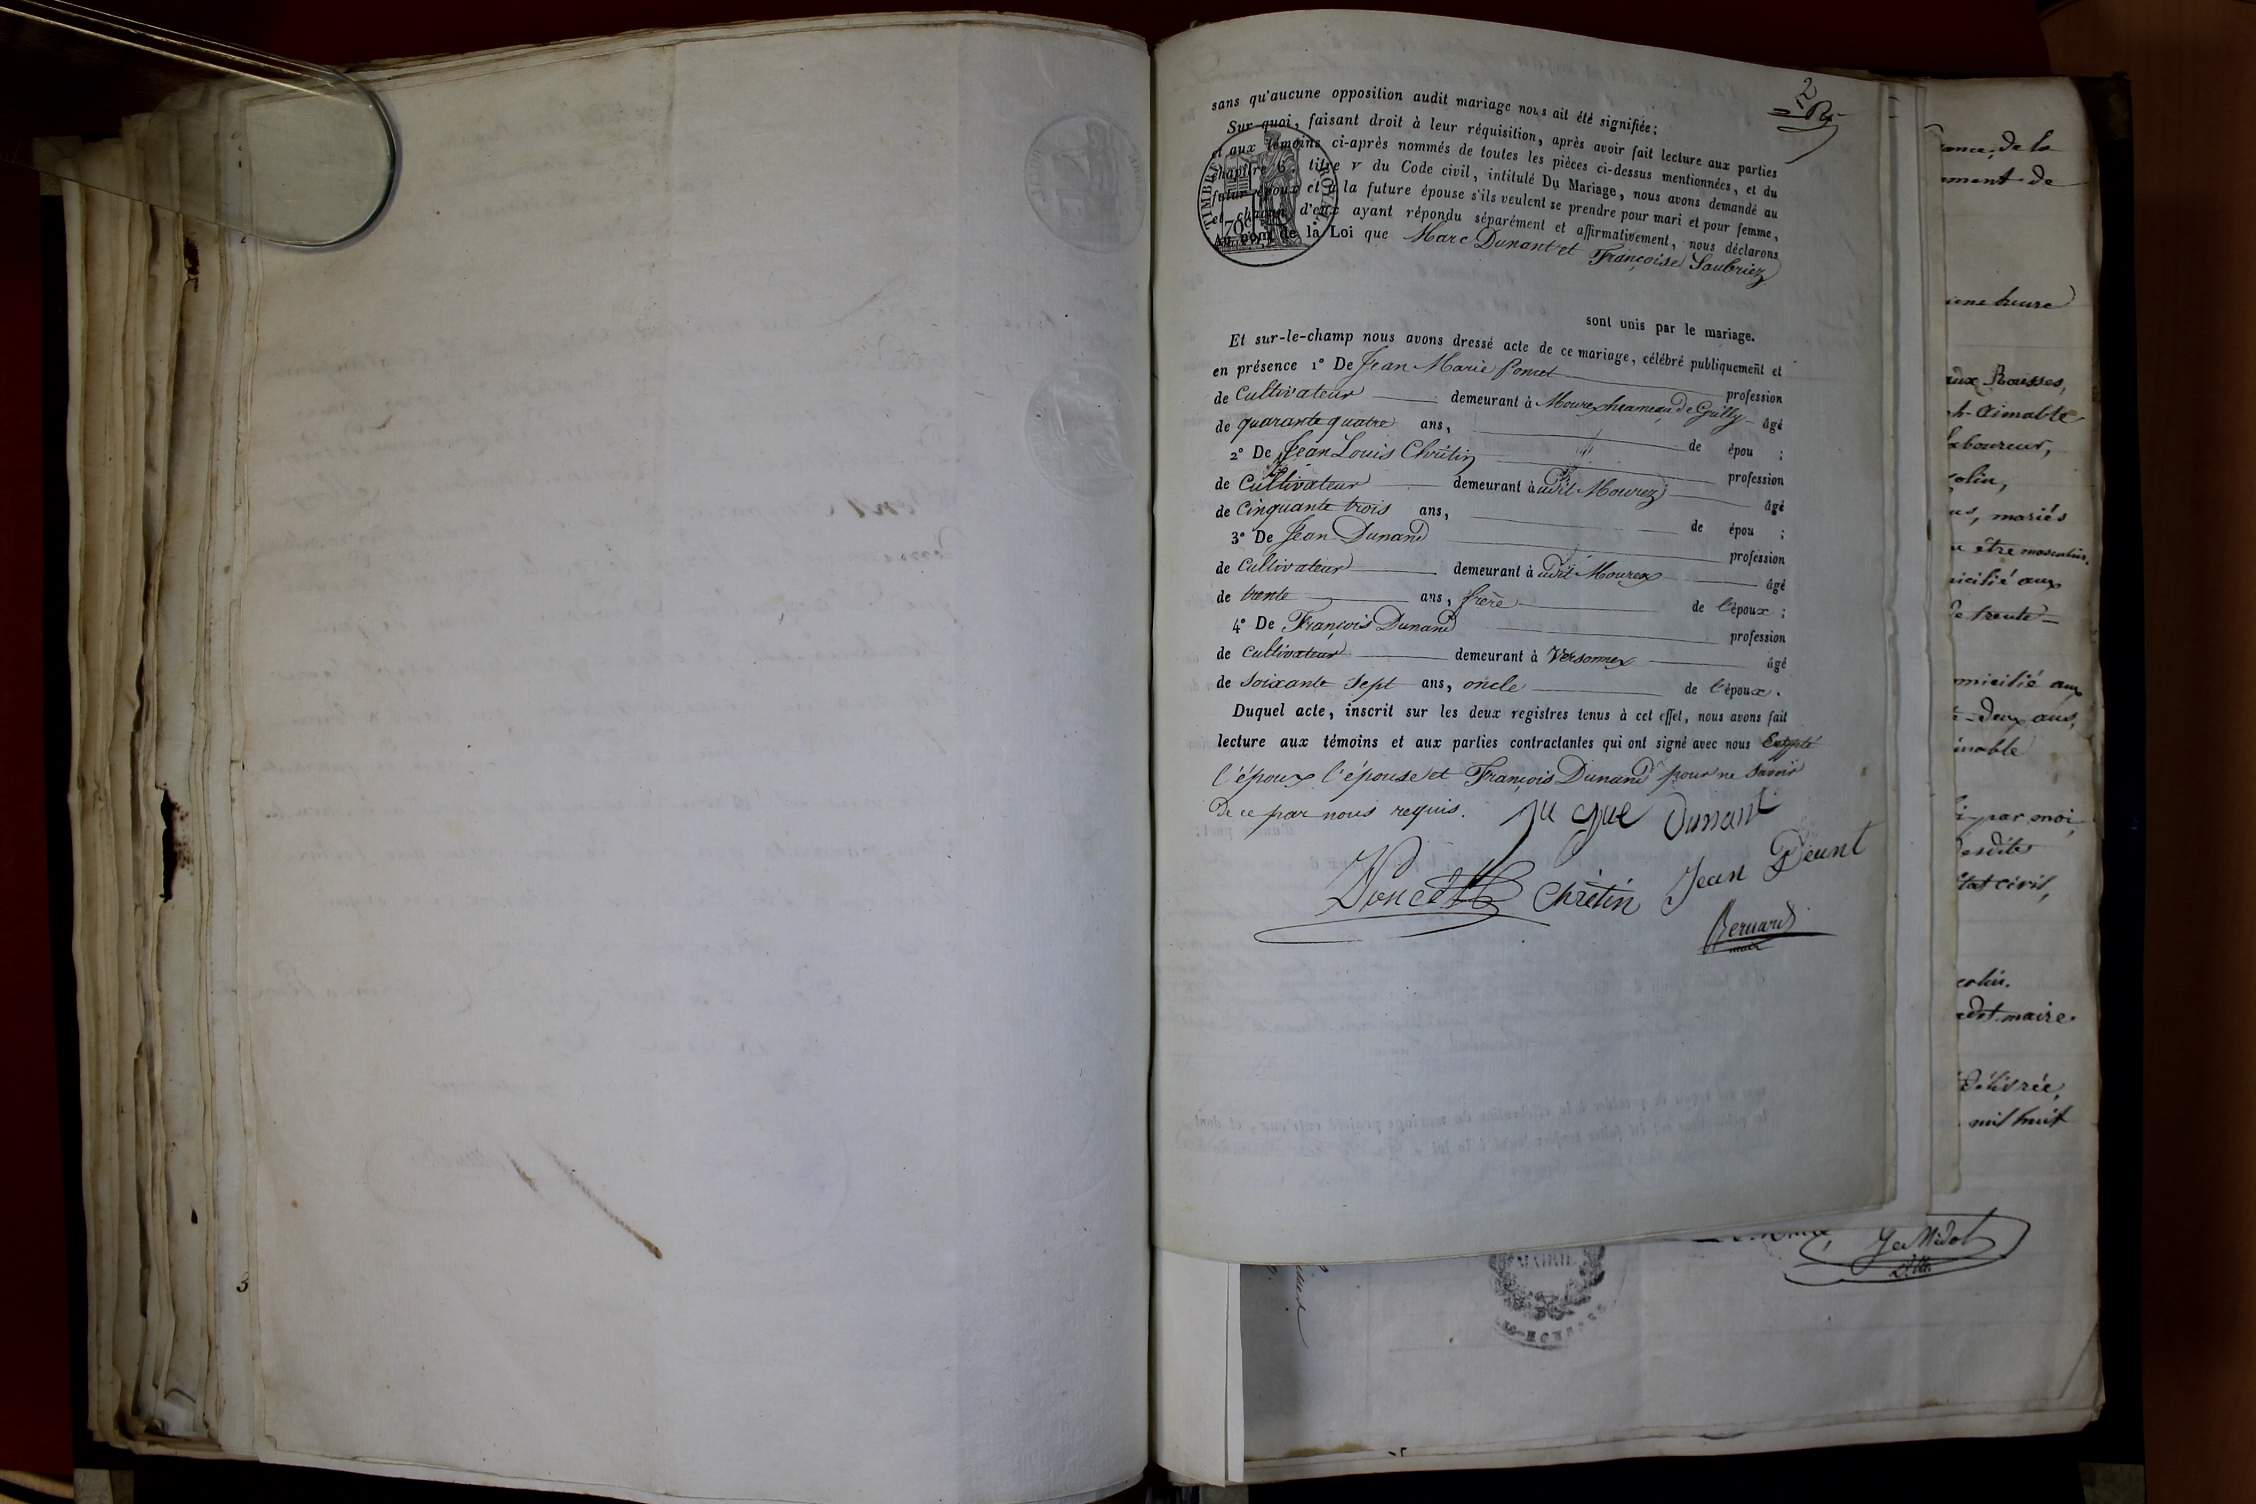 2
sans qu'aucune opposition audit mariage nous ait été signifiée;
Sur quoi, faisant droit à leur réquisition, après avoir fait lecture aux parties
et aux témoins ci-après nommés de toutes les pièces ci-dessus mentionnées, et du
chapitre 6, titre v du Code civil, intitulé Du Mariage, nous avons demandé au
futur époux et à la future épouse s'ils veulent se prendre pour mari et pour femme,
et chacun d'eux ayant répondu séparément et affirmativement, nous déclarons
Au nom de la Loi que Marc Dunant et Françoise Saubriez
TIMBRE ROYAL
70c
sont unis par le mariage.
Et sur-le-champ nous avons dressé acte de ce mariage, célébré publiquement et
en présence 1° De Jean Marie Poncet profession
de Cultivateur demeurant à Mourex hameau de Grilly âgé
de quarante quatre ans, de épou ;
2° De Jean Louis Chrétin profession
de Cultivateur demeurant à udit Mourez âgé
de Cinquante trois ans, de épou ;
3° De Jean Dunand profession
de Cultivateur demeurant à udit Mourex âgé
de trente ans, frère de l'époux ;
4° De François Dunand profession
de Cultivateur demeurant à Versonnex âgé
de soixante sept ans, oncle de l'époux.
Duquel acte, inscrit sur les deux registres tenus à cet effet, nous avons fait
lecture aux témoins et aux parties contractantes qui ont signé avec nous Excepté
l'époux l'épouse et François Dunand pour ne savoir
de ce par nous requis.
Dunant
Poncet Chrétin Jean
Bernard
maire
de la
ment de
heure
aux Rousses,
Aimable
laboureur,
mariés
être
aux
trente
aux
deux ans,
par moi
état civil,
maire
Délivrée,
mil huit
MAIRIE
3